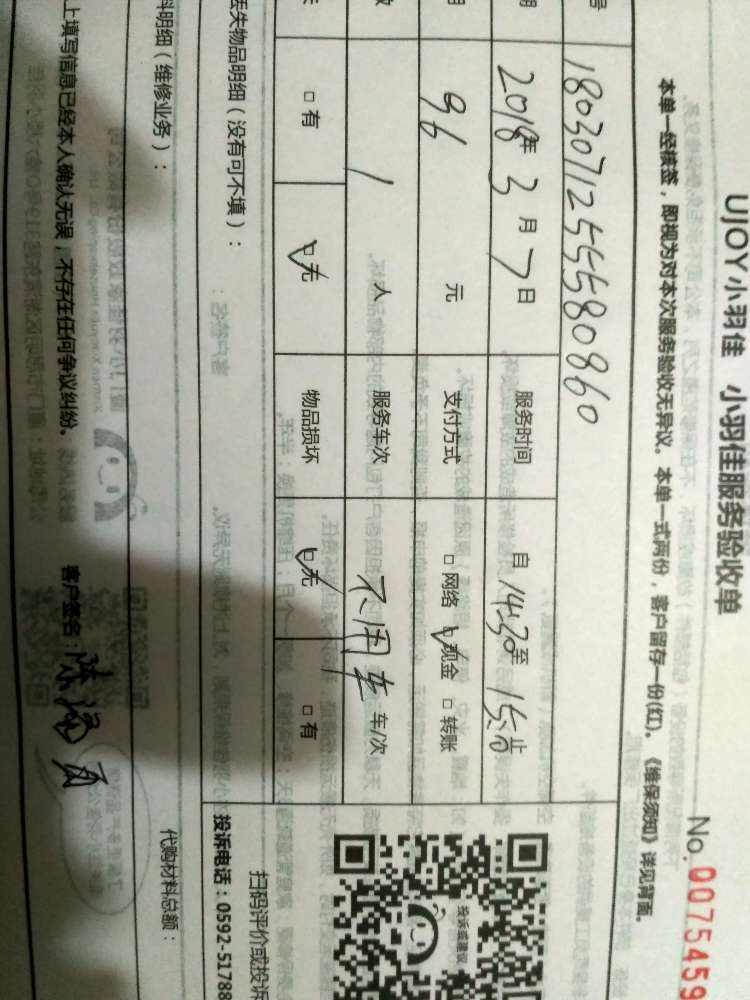 UJOY小羽佳 小羽佳服务验收单
No. 0075459
本单一经接签，即视为对本次服务验收无异议。本单一式两份，客户留存一份(红)。《维保须知》详见背面。
号 1803071255580860
期 2018年3月7日 服务时间 自 14:30至 止
96 元 支付方式 □网络 □现金 □转账
数 1 人 服务车次 不用车 车/次
□有 □无 物品损坏 □无 □有
丢失物品明细（没有可不填）：
扫码评价或投诉
投诉或建议
投诉电话：0592-51788
料明细（维修业务）：
代购材料总额：
上填写信息已经本人确认无误，不存在任何争议纠纷。 客户签名：